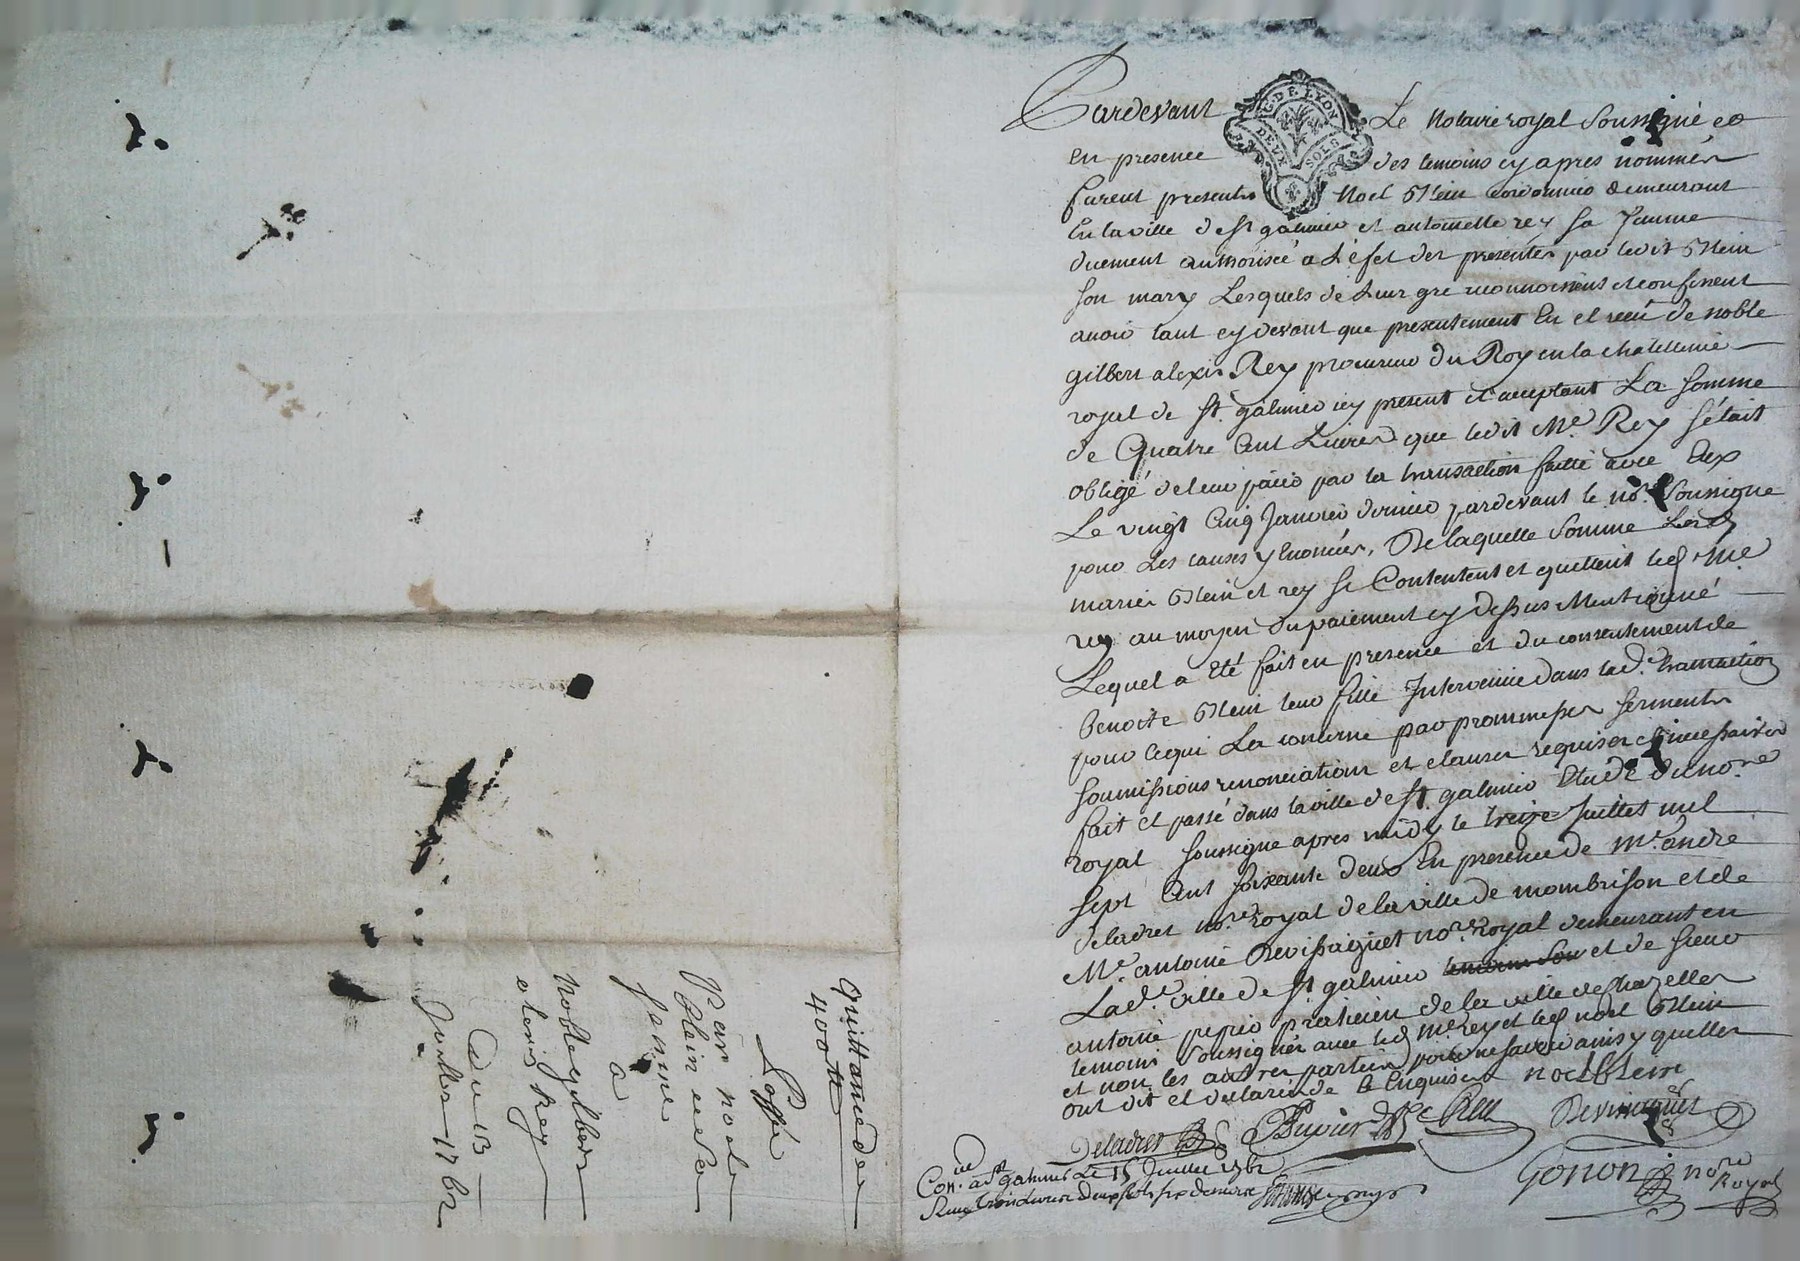 Pardevant Le Notaire royal Soussigné et
G. DE LYON
DEUX SOLS
En presence des temoins cy apres nommés
furent presents Noel Blein cordonnier demeurant
En la ville de st galmier et antoinette rey sa femme
duement authorisée a L'éfet des presentes par ledit Blein
son mary Lesquels de Leur gré reconnoissent et confessent
avoir tant cy devant que presentement Eu et reçu de noble
gilbert alexis Rey procureur du Roy en la chatellenie
royal de st. galmier icy present et acceptant La somme
de Quatre Cent Livres que ledit Me. Rey s'était
obligé de leur païer par la transaction faitte avec Eux
Le vingt Cinq Janvier dernier pardevant le nore. Soussigné
pour Les causes y Enoncées, De laquelle Somme Lesd
mariés Blein et rey se Contentent et quittent led Me
rey au moyen du paiement cy dessus Mentionné
Lequel a Eté fait en presence et du consentement de
benoite Blein leur fille Intervenüe dans lade. transaction
pour ce qui La concerne par prommesses serments
soumissions renonciations et clauses requises et necessaires
fait et passé dans la ville de st. galmier Etude du nore
royal soussigné apres midy le treize Juillet mil
sept Cent soixante deux En presence de me. andré
deladret nore. royal de la ville de mombrison et de
Me. antoine Devissaguet nore. royal demeurant en
Lade. ville de st galmier et de sieur
antoine pupier praticien de la ville de chazelles
temoins Soussignés avec led me. rey et led noel Blein
et non les autres parties pour ne savoir ainsy quelles
ont dit et declaré de ce Enquises noel blein
Deladret Pupier Rey Devissaguet
Gonon nore Royal
Con. a st galmier Le 15 Juillet 1762
Reçu trois livres deux sols six deniers
quittance de
400 ₶
Passée
Par noel
Blein et sa
femme
a
noble gilbert
alexis Rey
Du 13
Juillet 1762